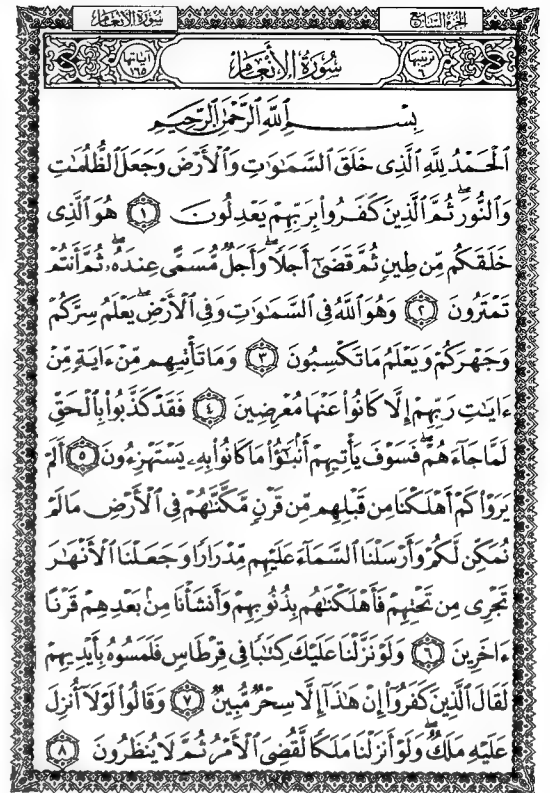 سُورَةُ الأَنْعَامِ
الجُزءُ السَّابِعُ
ترتيبها ٦
سُورَةُ الأَنْعَامِ
آياتها ١٦٥
بِسْمِ ٱللَّهِ ٱلرَّحْمَٰنِ ٱلرَّحِيمِ
ٱلْحَمْدُ لِلَّهِ ٱلَّذِى خَلَقَ ٱلسَّمَٰوَٰتِ وَٱلْأَرْضَ وَجَعَلَ ٱلظُّلُمَٰتِ
وَٱلنُّورَ ۖ ثُمَّ ٱلَّذِينَ كَفَرُوا۟ بِرَبِّهِمْ يَعْدِلُونَ ١ هُوَ ٱلَّذِى
خَلَقَكُم مِّن طِينٍ ثُمَّ قَضَىٰٓ أَجَلًا ۖ وَأَجَلٌ مُّسَمًّى عِندَهُۥ ۖ ثُمَّ أَنتُمْ
تَمْتَرُونَ ٢ وَهُوَ ٱللَّهُ فِى ٱلسَّمَٰوَٰتِ وَفِى ٱلْأَرْضِ ۖ يَعْلَمُ سِرَّكُمْ
وَجَهْرَكُمْ وَيَعْلَمُ مَا تَكْسِبُونَ ٣ وَمَا تَأْتِيهِم مِّنْ ءَايَةٍ مِّنْ
ءَايَٰتِ رَبِّهِمْ إِلَّا كَانُوا۟ عَنْهَا مُعْرِضِينَ ٤ فَقَدْ كَذَّبُوا۟ بِٱلْحَقِّ
لَمَّا جَآءَهُمْ ۖ فَسَوْفَ يَأْتِيهِمْ أَنۢبَٰٓؤُا۟ مَا كَانُوا۟ بِهِۦ يَسْتَهْزِءُونَ ٥ أَلَمْ
يَرَوْا۟ كَمْ أَهْلَكْنَا مِن قَبْلِهِم مِّن قَرْنٍ مَّكَّنَّٰهُمْ فِى ٱلْأَرْضِ مَا لَمْ
نُمَكِّن لَّكُمْ وَأَرْسَلْنَا ٱلسَّمَآءَ عَلَيْهِم مِّدْرَارًا وَجَعَلْنَا ٱلْأَنْهَٰرَ
تَجْرِى مِن تَحْتِهِمْ فَأَهْلَكْنَٰهُم بِذُنُوبِهِمْ وَأَنشَأْنَا مِنۢ بَعْدِهِمْ قَرْنًا
ءَاخَرِينَ ٦ وَلَوْ نَزَّلْنَا عَلَيْكَ كِتَٰبًا فِى قِرْطَاسٍ فَلَمَسُوهُ بِأَيْدِيهِمْ
لَقَالَ ٱلَّذِينَ كَفَرُوٓا۟ إِنْ هَٰذَآ إِلَّا سِحْرٌ مُّبِينٌ ٧ وَقَالُوا۟ لَوْلَآ أُنزِلَ
عَلَيْهِ مَلَكٌ ۖ وَلَوْ أَنزَلْنَا مَلَكًا لَّقُضِىَ ٱلْأَمْرُ ثُمَّ لَا يُنظَرُونَ ٨